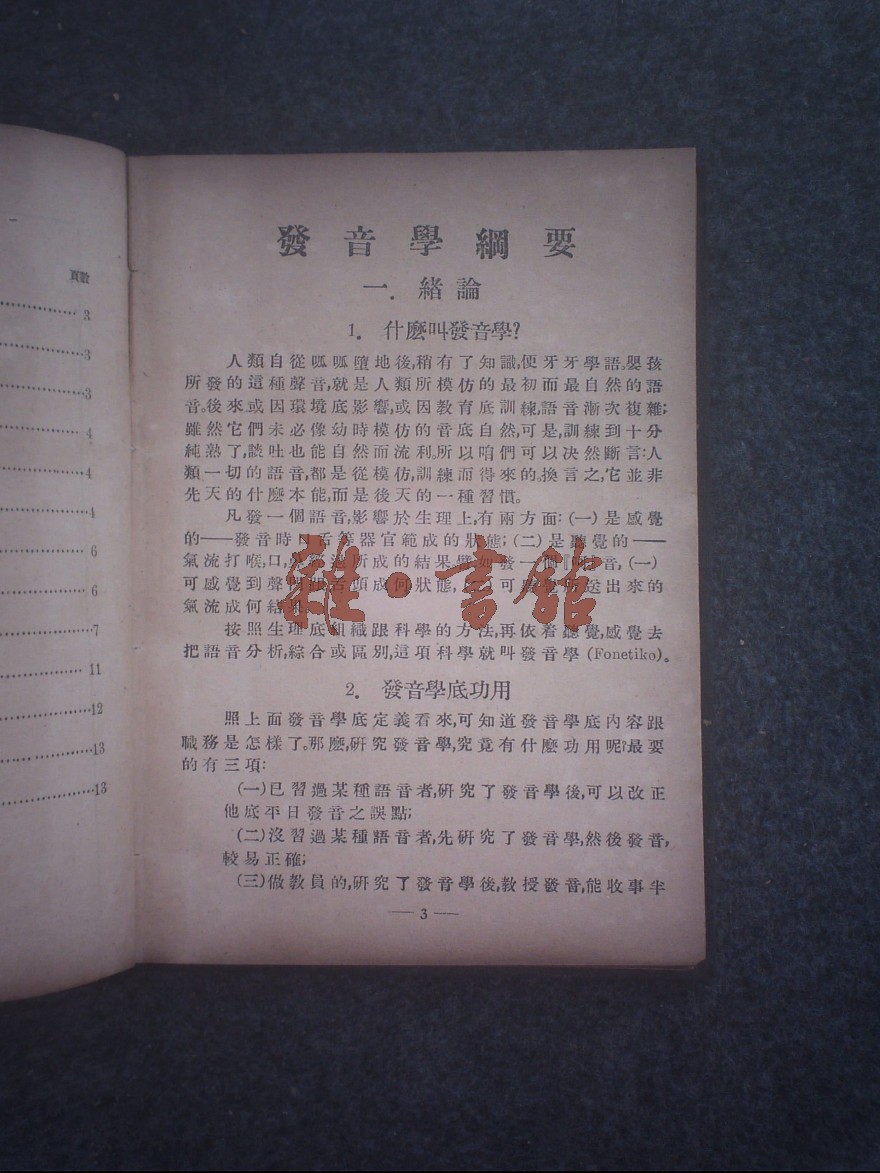 頁數
3
3
3
4
4
4
6
6
7
11
12
13
13
發音學綱要
一．緒論
1．什麽叫發音學？
人類自從呱呱墮地後,稍有了知識,便牙牙學語。嬰孩
所發的這種聲音,就是人類所模仿的最初而最自然的語
音。後來或因環境底影響,或因教育底訓練,語音漸次複雜;
雖然它們未必像幼時模仿的音底自然,可是,訓練到十分
純熟了,談吐也能自然而流利。所以咱們可以決然斷言:人
類一切的語音,都是從模仿,訓練而得來的。換言之,它並非
先天的什麽本能,而是後天的一種習慣。
凡發一個語音,影響於生理上,有兩方面:(一)是感覺
的——發音時口舌等器官範成的狀態;(二)是聽覺的——
氣流打喉,口,鼻經過所成的結果。譬如發一個『音,(一)
可感覺到聲門跟舌頭成何狀態,可聽覺所送出來的
氣流成何結果。
按照生理底組織跟科學的方法,再依着聽覺,感覺去
把語音分析,綜合或區別,這項科學就叫發音學(Fonetiko)。
2．發音學底功用
照上面發音學底定義看來,可知道發音學底內容跟
職務是怎樣了。那麽,硏究發音學,究竟有什麽功用呢?最要
的有三項:
(一)已習過某種語音者,硏究了發音學後,可以改正
他底平日發音之誤點;
(二)沒習過某種語音者,先硏究了發音學,然後發音,
較易正確;
(三)做教員的,硏究了發音學後,教授發音,能收事半
— 3 —
雜·書館